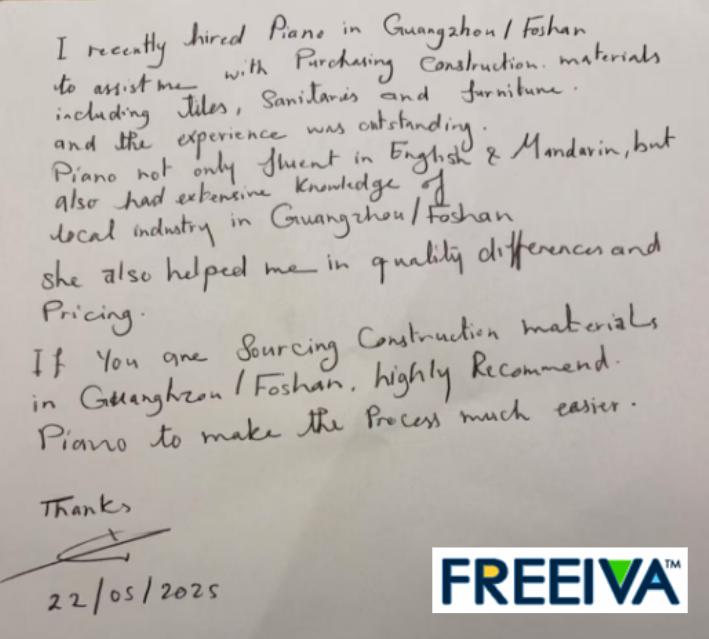 I recently hired Piano in Guangzhou/Foshan
to assist me with Purchasing Construction. materials
including tiles, Sanitaries and furniture.
and the experience was outstanding.
Piano not only fluent in English & Mandarin, but
also had extensive Knowledge of
local industry in Guangzhou/Foshan
she also helped me in quality differences and
Pricing.
If You are Sourcing Construction materials
in Guanghzou/Foshan. highly Recommend.
Piano to make the Process much easier.
Thanks
22/05/2025
FREEIVA™